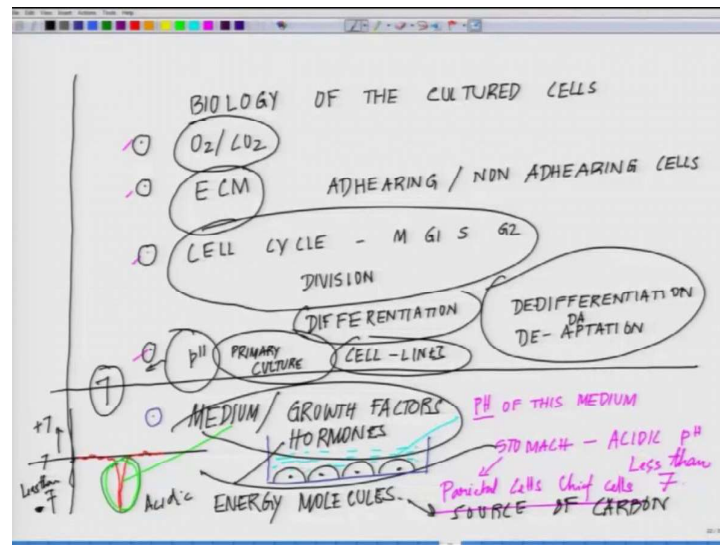 BIOLOGY OF THE CULTURED CELLS
O2/CO2
ECM ADHEARING / NON ADHEARING CELLS
CELL CYCLE - M G1 S G2
DIVISION
DIFFERENTIATION
DEDIFFERENTIATION
DA
DE-APTATION
pH PRIMARY CULTURE CELL-LINES
7
MEDIUM / GROWTH FACTORS
HORMONES
PH OF THIS MEDIUM
STOMACH - ACIDIC pH
Less than 7
Parietal Cells Chief cells
+7
7
Less than 7
Acidic
ENERGY MOLECULES
SOURCE OF CARBON